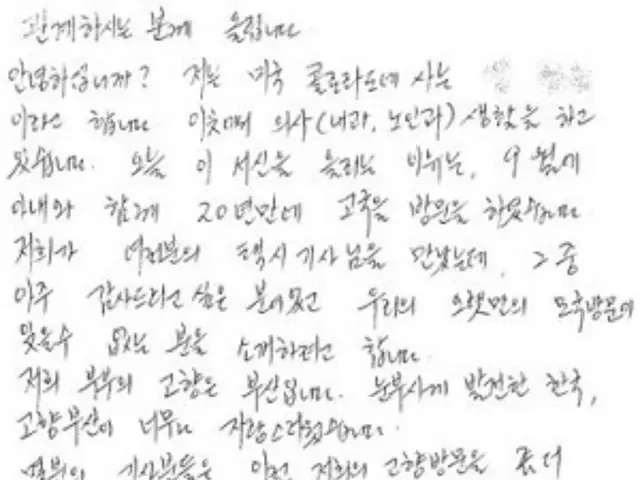 관계하시는 분께 올립니다
안녕하십니까? 저는 미국 콜로라도에 사는
이라고 합니다. 의사(내과, 노인과) 생활을 하고
있습니다. 오늘 이 서신을 올리는 이유는, 9월에
아내와 함께 20년만에 고국을 방문을 하였습니다.
저희가 여러분의 택시 기사님을 만났는데, 그 중
아주 감사드리고 싶은 분이었고 우리의 오랫만의 모국방문에
잊을수 없는 분을 소개하려고 합니다.
저희 부부의 고향은 부산입니다. 눈부시게 발전한 한국,
고향부산이 너무나 자랑스러웠습니다.
기사분들은 저희의 고향방문을 좀 더